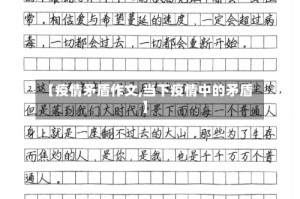 常,相信爱与希望蔓延的速度,一定会超过病
毒,一切都会过去,一切都会重新开始。
【疫情矛盾作文,当下疫情中的矛盾
】
但是落到我们大时代背景下面的每一个普通人
身上就是一座翻不过去的大山。那些为了生存
而焦灼的人,是你,是我,也是千千万万个普
通人。